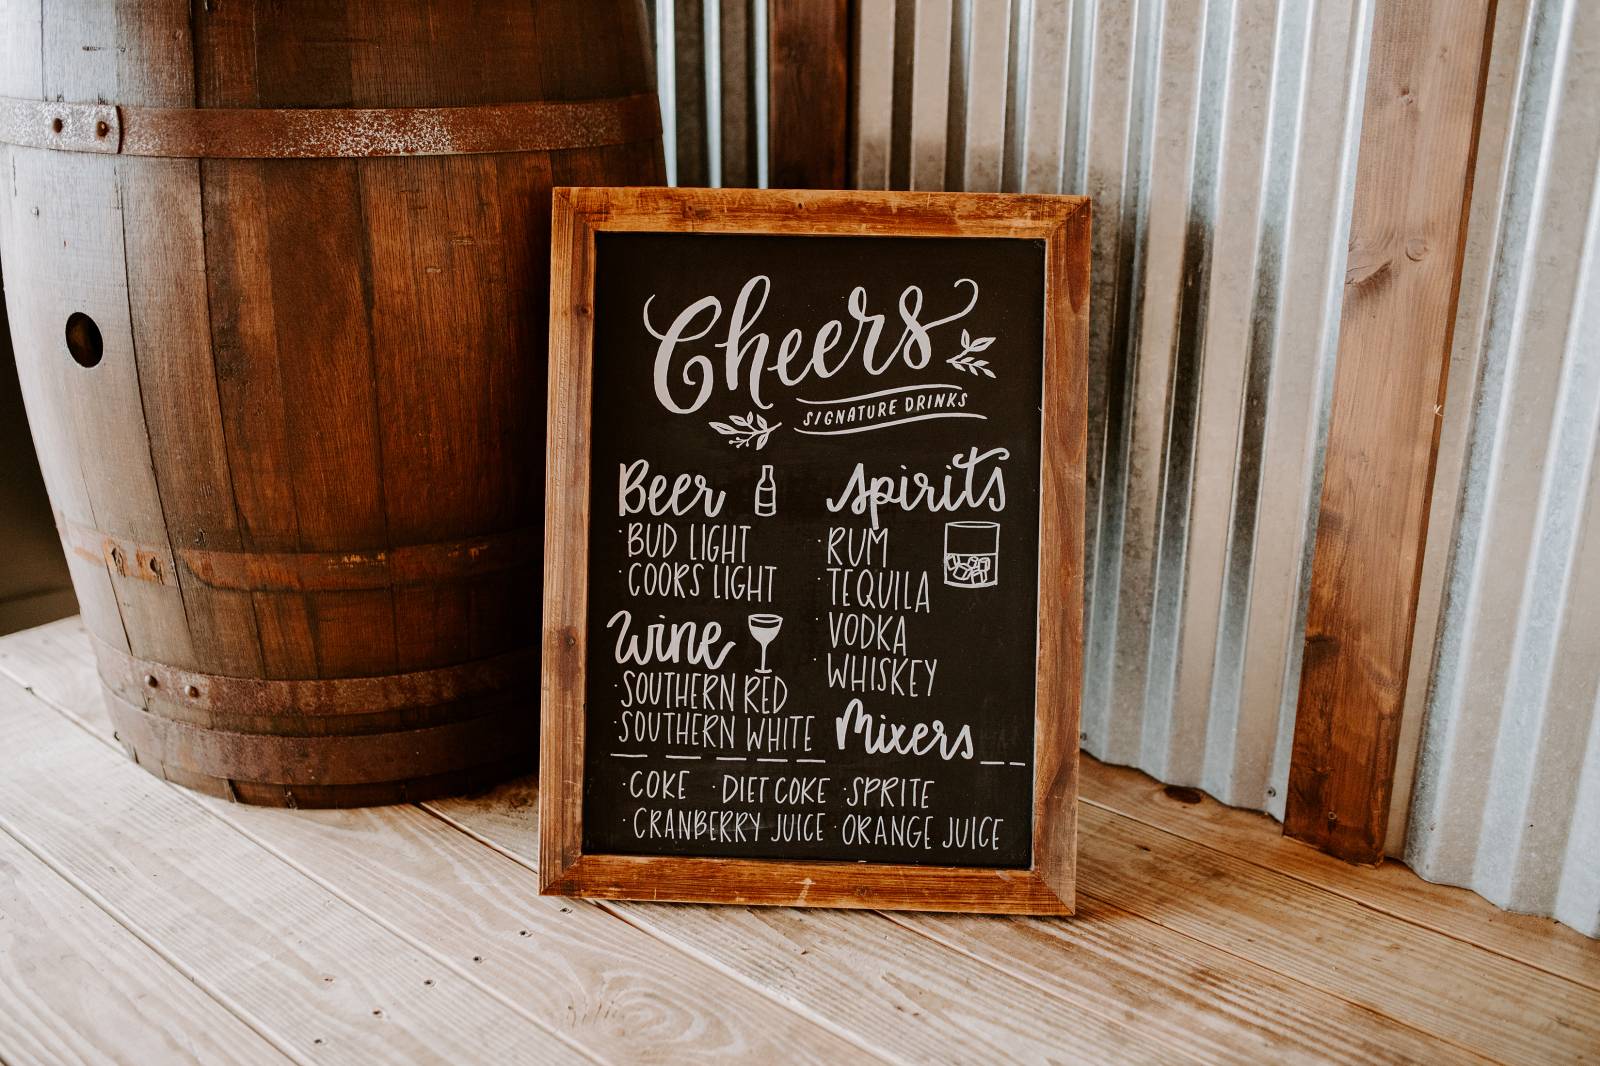 Cheers
SIGNATURE DRINKS
Beer
· BUD LIGHT
· COORS LIGHT
Wine
· SOUTHERN RED
· SOUTHERN WHITE
Spirits
· RUM
· TEQUILA
· VODKA
· WHISKEY
Mixers
· COKE · DIET COKE · SPRITE
· CRANBERRY JUICE · ORANGE JUICE